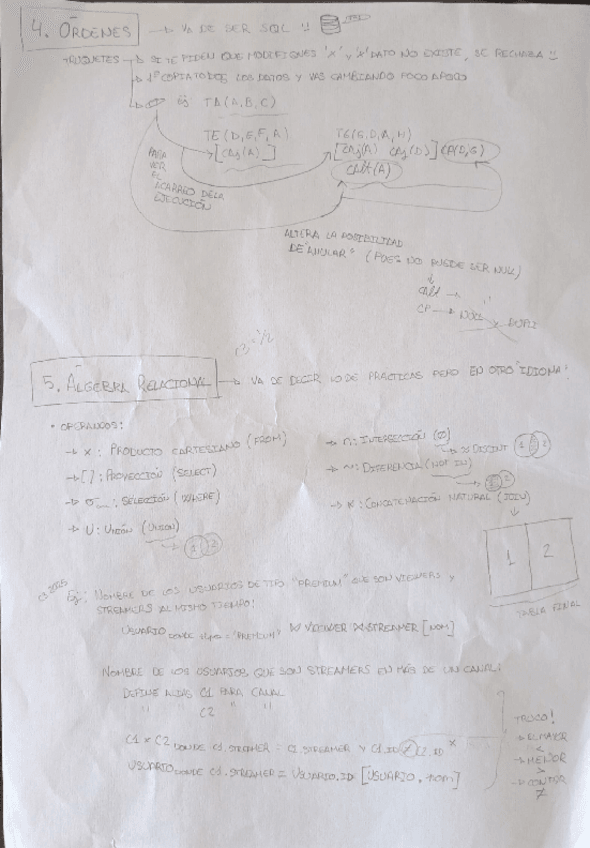 4. ÓRDENES → VA DE SER SQL !!
TRUQUETES → SI TE PIDEN QUE MODIFIQUES 'X' Y 'X' DATO NO EXISTE, SE RECHAZA !!
→ 1º COPIA TODOS LOS DATOS Y VAS CAMBIANDO POCO A POCO
Ej: TA (A, B, C)
TE (D, E, F, A) TG (G, D, A, H)
[CAj (A)] [CAj (A) CAj (D)] CP (D, G)
(A)
PARA VER EL ACARREO DE LA EJECUCIÓN
ALTERA LA POSIBILIDAD
DE "ANULAR" (PUES NO PUEDE SER NULL)
CP →
5. ÁLGEBRA RELACIONAL → VA DE DECIR LO DE PRÁCTICAS PERO EN OTRO 'IDIOMA'!
• OPERANDOS:
→ × : PRODUCTO CARTESIANO (FROM)
→ [ ] : PROYECCIÓN (SELECT)
→ σ : SELECCIÓN (WHERE)
→ U : UNIÓN (UNION)
1 2
→ ∩ : INTERSECCIÓN
1 2
→ ~ : DIFERENCIA (NOT IN)
→ * : CONCATENACIÓN NATURAL (JOIN)
1 2
TABLA FINAL
Ej: NOMBRE DE LOS USUARIOS DE TIPO "PREMIUM" QUE SON VIEWERS Y
STREAMERS AL MISMO TIEMPO!
USUARIO DONDE tipo = 'PREMIUM' ⋈ VIEWER ⋈ STREAMER [NOM]
NOMBRE DE LOS USUARIOS QUE SON STREAMERS EN MÁS DE UN CANAL:
DEFINE ALIAS C1 PARA CANAL
" " C2 " "
C1 × C2 DONDE C1.STREAMER = C2.STREAMER Y C1.ID ≠ C2.ID
USUARIO DONDE C1.STREAMER = USUARIO.ID [USUARIO.NOM]
TRUCO!
→ EL MAYOR
<
→ MENOR
>
→ CONTAR
≠